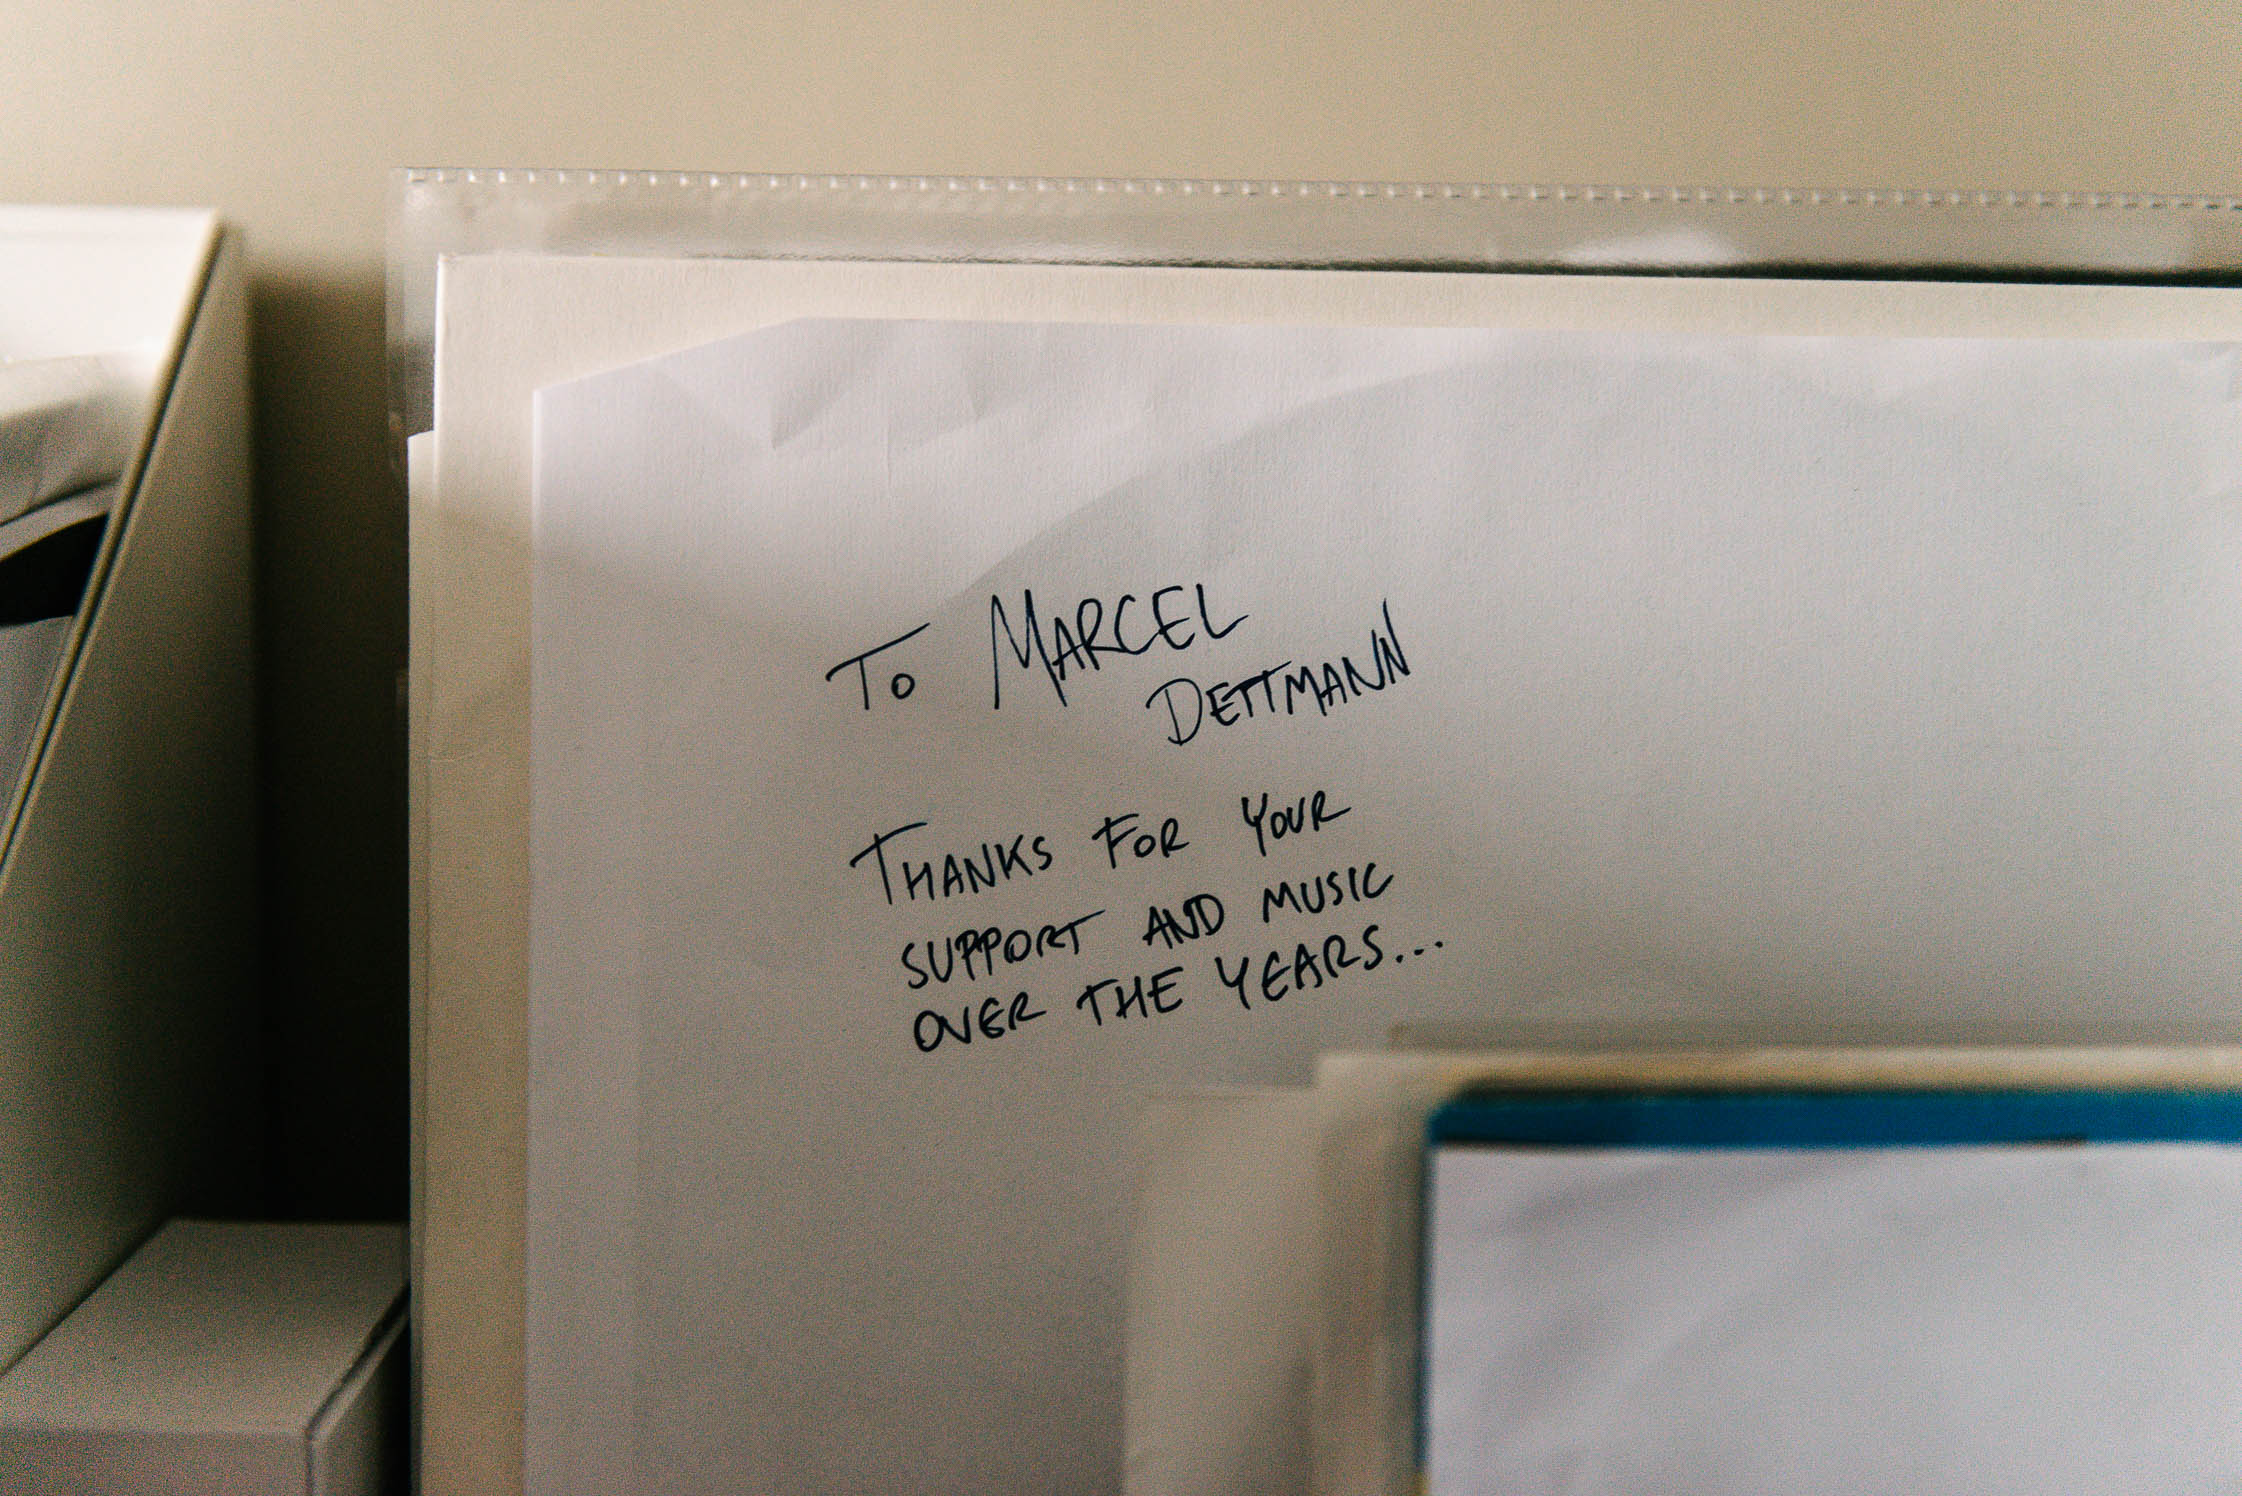 To MARCEL
DETTMANN
THANKS FOR YOUR
SUPPORT AND MUSIC
OVER THE YEARS...